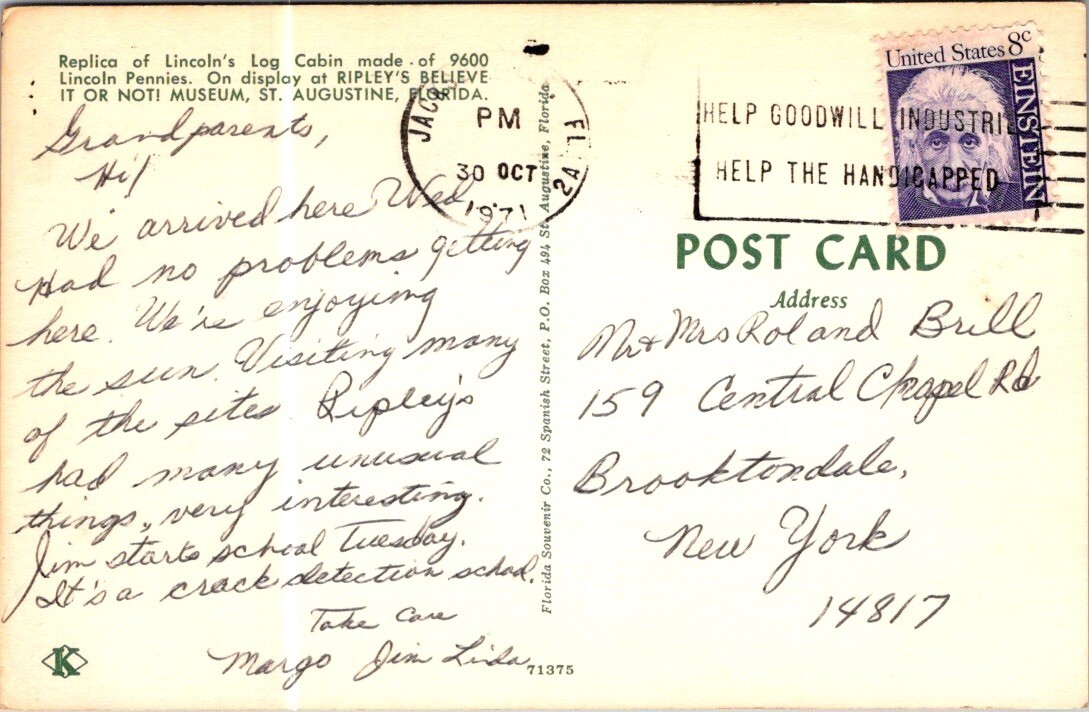 Replica of Lincoln's Log Cabin made of 9600
Lincoln Pennies. On display at RIPLEY'S BELIEVE
IT OR NOT! MUSEUM, ST. AUGUSTINE, FLORIDA.
Grandparents,
Hi!
We arrived here Wed
Had no problems getting
here. We're enjoying
the sun. Visiting many
of the sites. Ripley's
had many unusual
things, very interesting.
Jim starts school Tuesday.
It's a crack detection school.
Take Care
Margo Jim Linda
K
71375
Florida Souvenir Co., 72 Spanish Street, P.O. Box 494 St. Augustine, Florida
JAC
FL
PM
30 OCT
2A
1971
HELP GOODWILL INDUSTRI
HELP THE HANDICAPPED
United States 8c
EINSTEIN
POST CARD
Address
Mr + Mrs Roland Brill
159 Central Chapel Rd
Brooktondale,
New York
14817